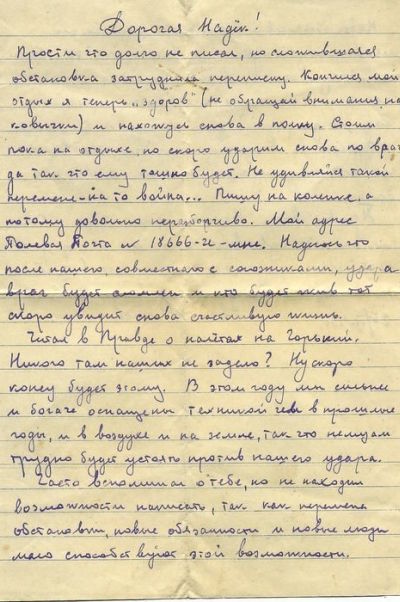 Дорогая Надёк!
Прости что долго не писал, но сложившаяся
обстановка затруднила переписку. Кончился мой
отдых я теперь „здоров" (не обращай внимания на
ковычки) и нахожусь снова в полку. Стоим
пока на отдыхе, но скоро ударим снова по врагу
да так что ему тошно будет. Не удивляйся такой
перемене – на то война... Пишу на коленке, а
потому довольно неразборчиво. Мой адрес
Полевая Почта N 18666-г- мне. Надеюсь что
после нашего, совместного с союзниками, удара
враг будет сломлен и кто будет жив тот
скоро увидит снова счастливую жизнь.
Читал в Правде о налётах на Горький.
Никого там наших не задело? Ну скоро
конец будет этому. В этом году мы сильнее
и богаче оснащены техникой чем в прошлые
годы, и в воздухе и на земле, так что немцам
трудно будет устоять против нашего удара.
Часто вспоминал о тебе, но не находил
возможности написать, так как перемена
обстановки, новые обязанности и новые люди
мало способствуют этой возможности.